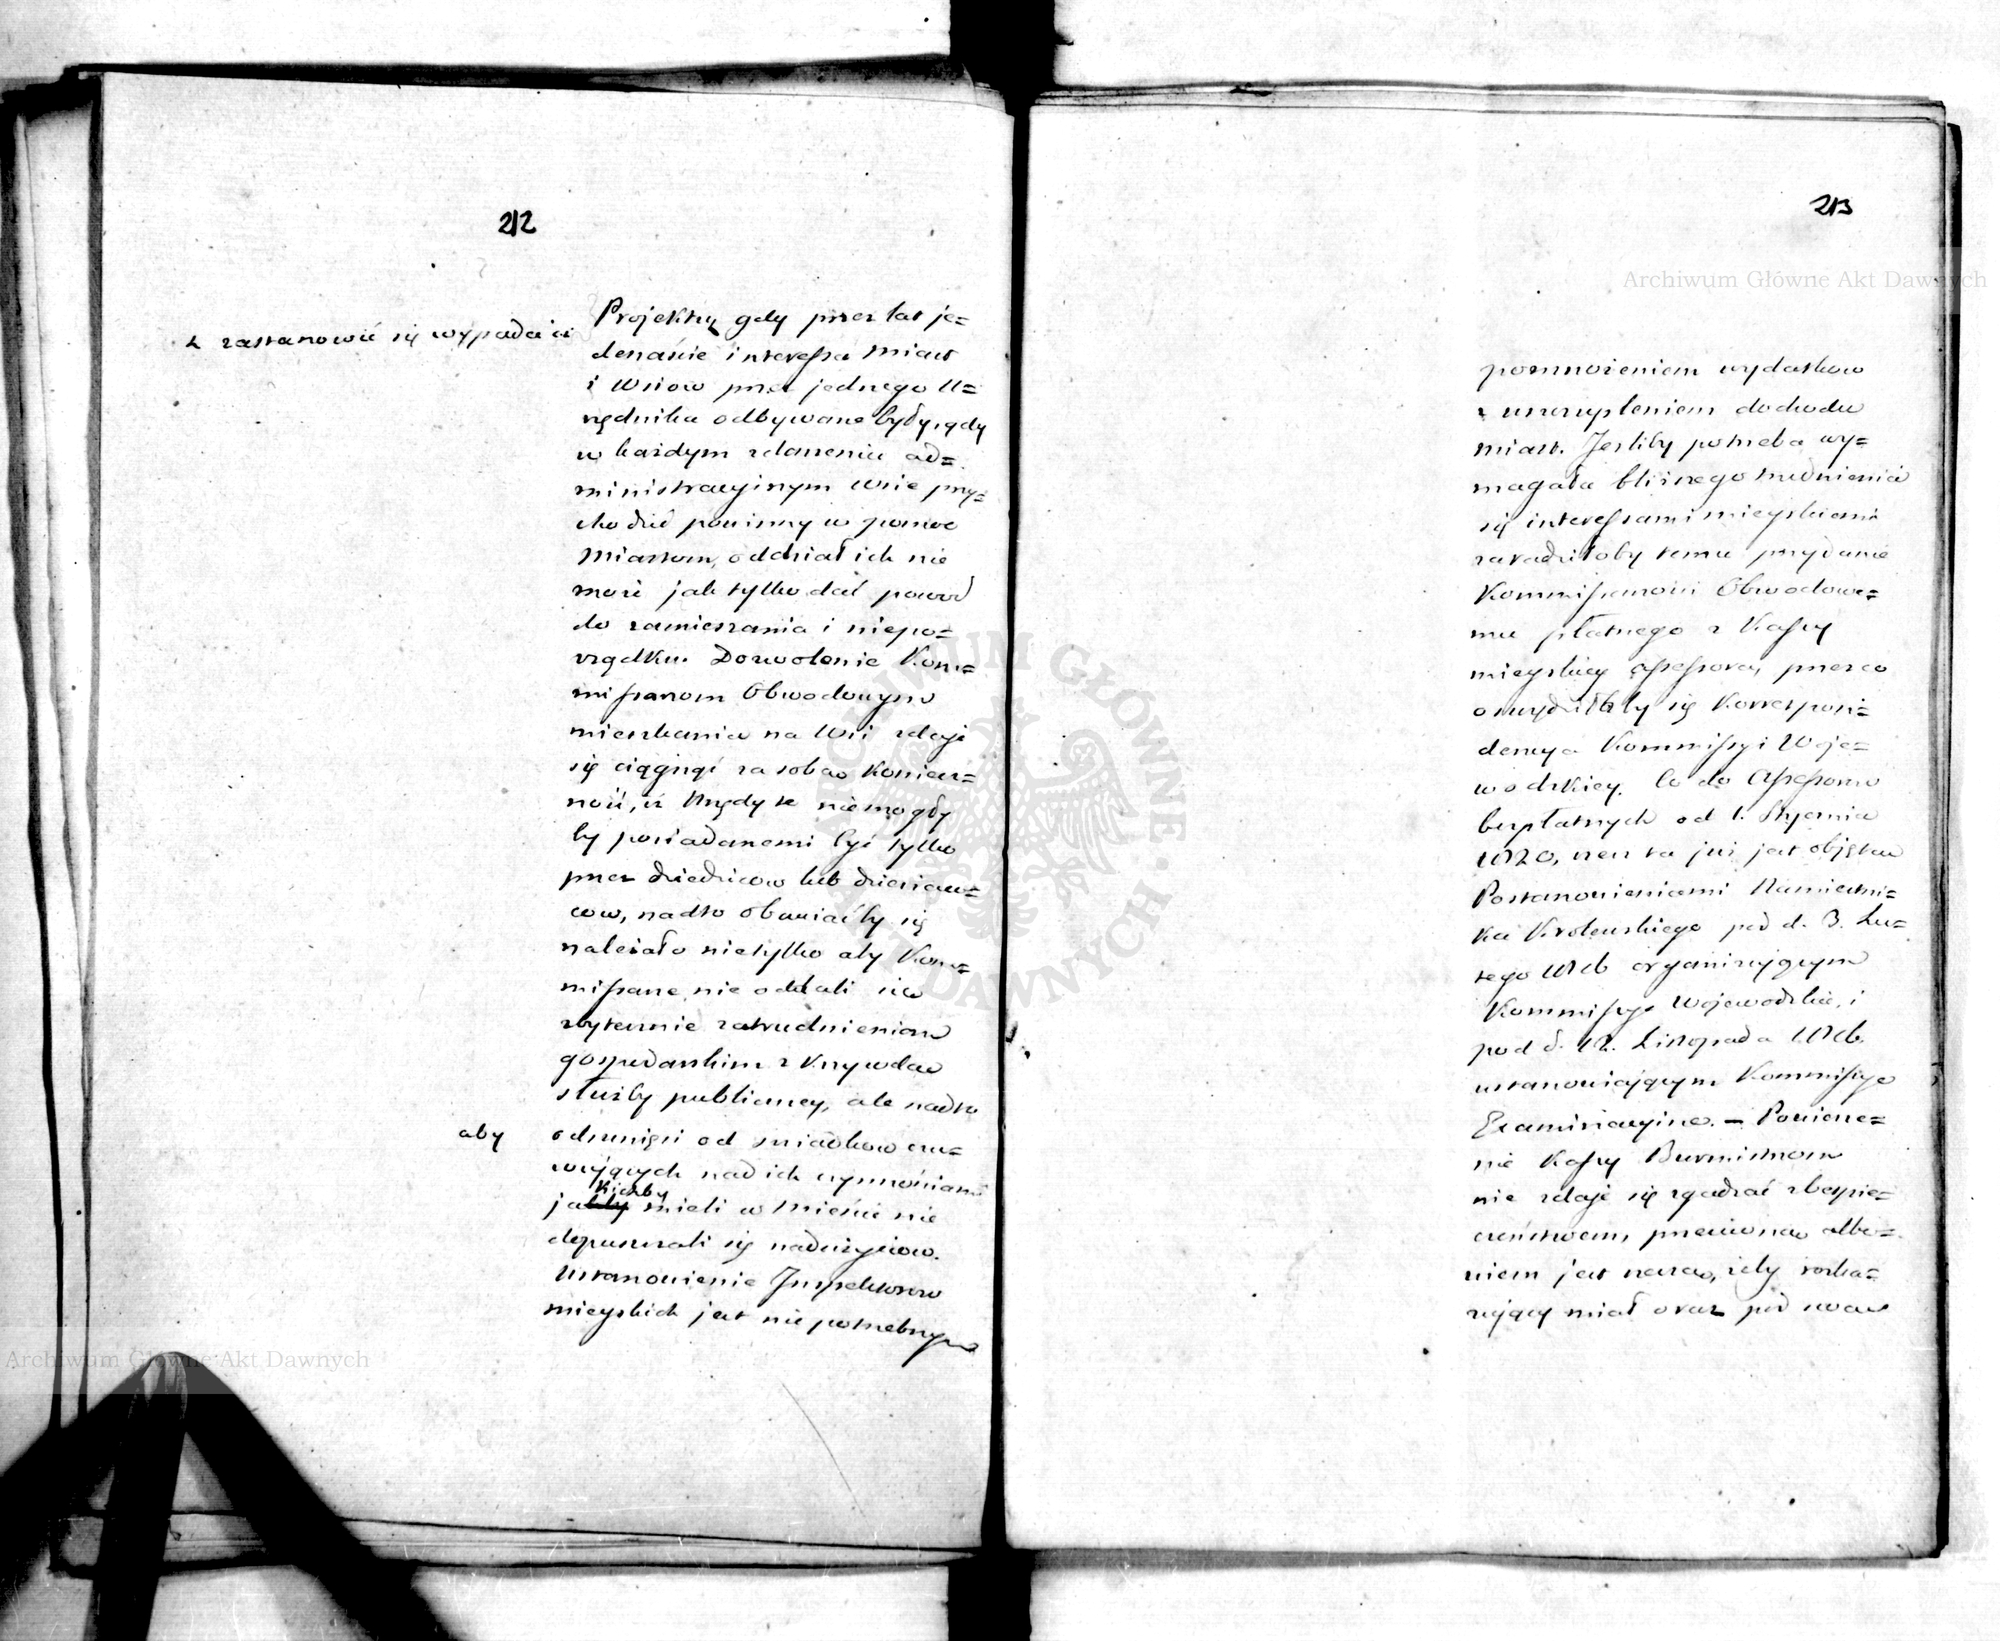 212
z zastanowić się wypada ii
Projektu gdy przez lat je=
denaście interessa miast
i Wsiow przez jednego U=
rzędnika odbywane były, gdy
w każdym zdarzeniu ad=
ministracyjnym wsie przy=
chodzić powinny w pomoc
Miastom, oddział ich nie
może jak tylko dać powod
do zamieszania i niepo=
rządku. Dozwolenie Kom=
missarzom Obwodowym
mieszkania na Wsi zdaje
się ciągnąć za sobą koniecz=
ność, iż Urzędy te niemogły
by posiadanemi być tylko
przez dziedzicow lub dzierżaw=
cow, nadto obawiać by się
należało nietylko aby Kom=
missarze nie oddali się
zbytecznie zatrudnieniom
gospodarskim z krzywdą
służby publiczney, ale nadto
aby
odsunięci od świadkow czu=
wających nad ich czynnościami
jakichby mieli w mieście nie
dopuszczali się nadużyciow.
Ustanowienie Inspektorow
mieyskich jest nie potrzebnym
213
Archiwum Główne Akt Dawnych
pomnożeniem wydatkow
z uszczupleniem dochodu
miast. Jesliby potrzeba wy=
magała bliższego trudnienia
się interessami mieyskiemi
zaradziłoby temu przydanie
Kommissarzowi Obwodowe=
mu płatnego z Kassy
mieyskiey Assessora, przez co
oszczędziłaby się korrespon=
dencya Kommissyi Woje=
wodzkiey. Co do Assessorow
bezpłatnych od 1. Stycznia
1820, rzecz ta już jest objęta
Postanowieniami Namiestni=
ka Krolewskiego pod d. 3. Lu=
tego 1816 organizującym
Kommissye Wojewodzkie, i
pod d. 12. Listopada 1816.
ustanowiającym Kommissye
Examinacyine. — Powierze=
nie Kassy Burmistrzom
nie zdaje się zgadzać z bezpie=
czeństwem, przeciwną albo=
wiem jest rzeczą, żeby rozka=
zujący miał oraz pod swą
Archiwum Główne Akt Dawnych
ARCHIWUM GŁÓWNE
AKT DAWNYCH